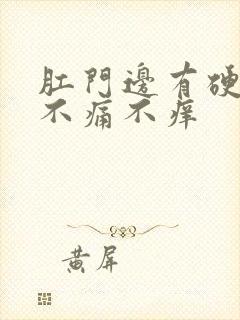 肛門邊有硬
不痛不痒
黄屏